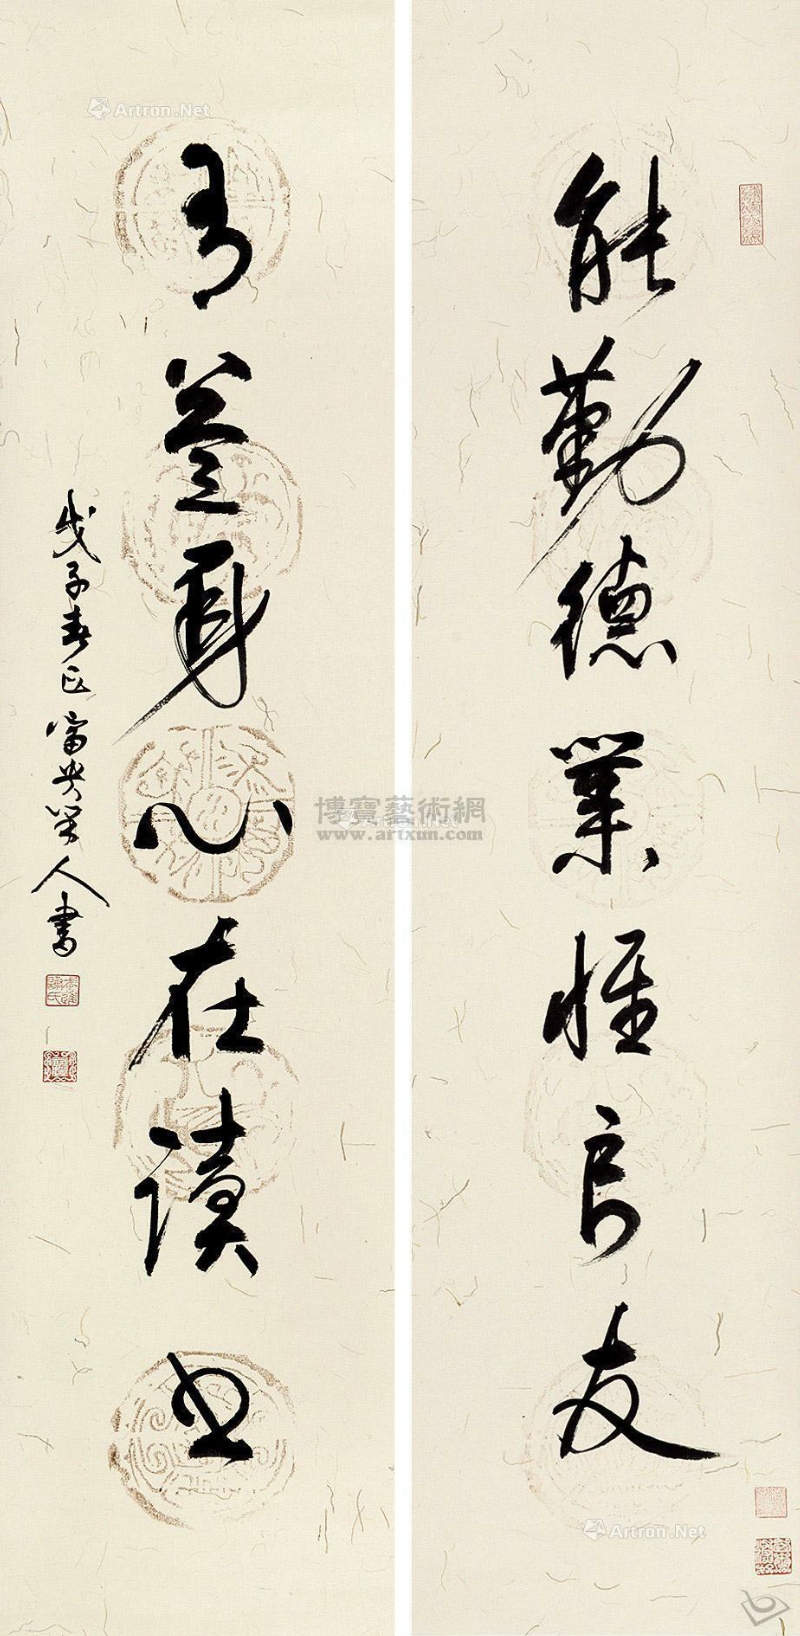 能勤德業惟良友
有益身心在读书
戊子春正
人書
博寶藝術網
www.artxun.com
Artron.Net
Artron.Net